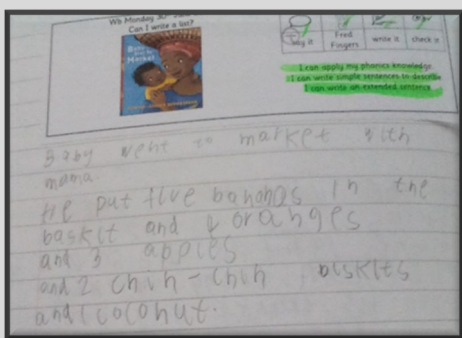 Wb Monday 30th
Can I write a list?
Baby
Market
say it
Fred Fingers
write it
check it
I can apply my phonics knowledge
I can write simple sentences to describe
I can write an extended sentence
Baby went to market with
mama.
He put five bananas in the
baskit and 4 oranges
and 3 apples
and 2 chin-chin biskits
and 1 coconut.